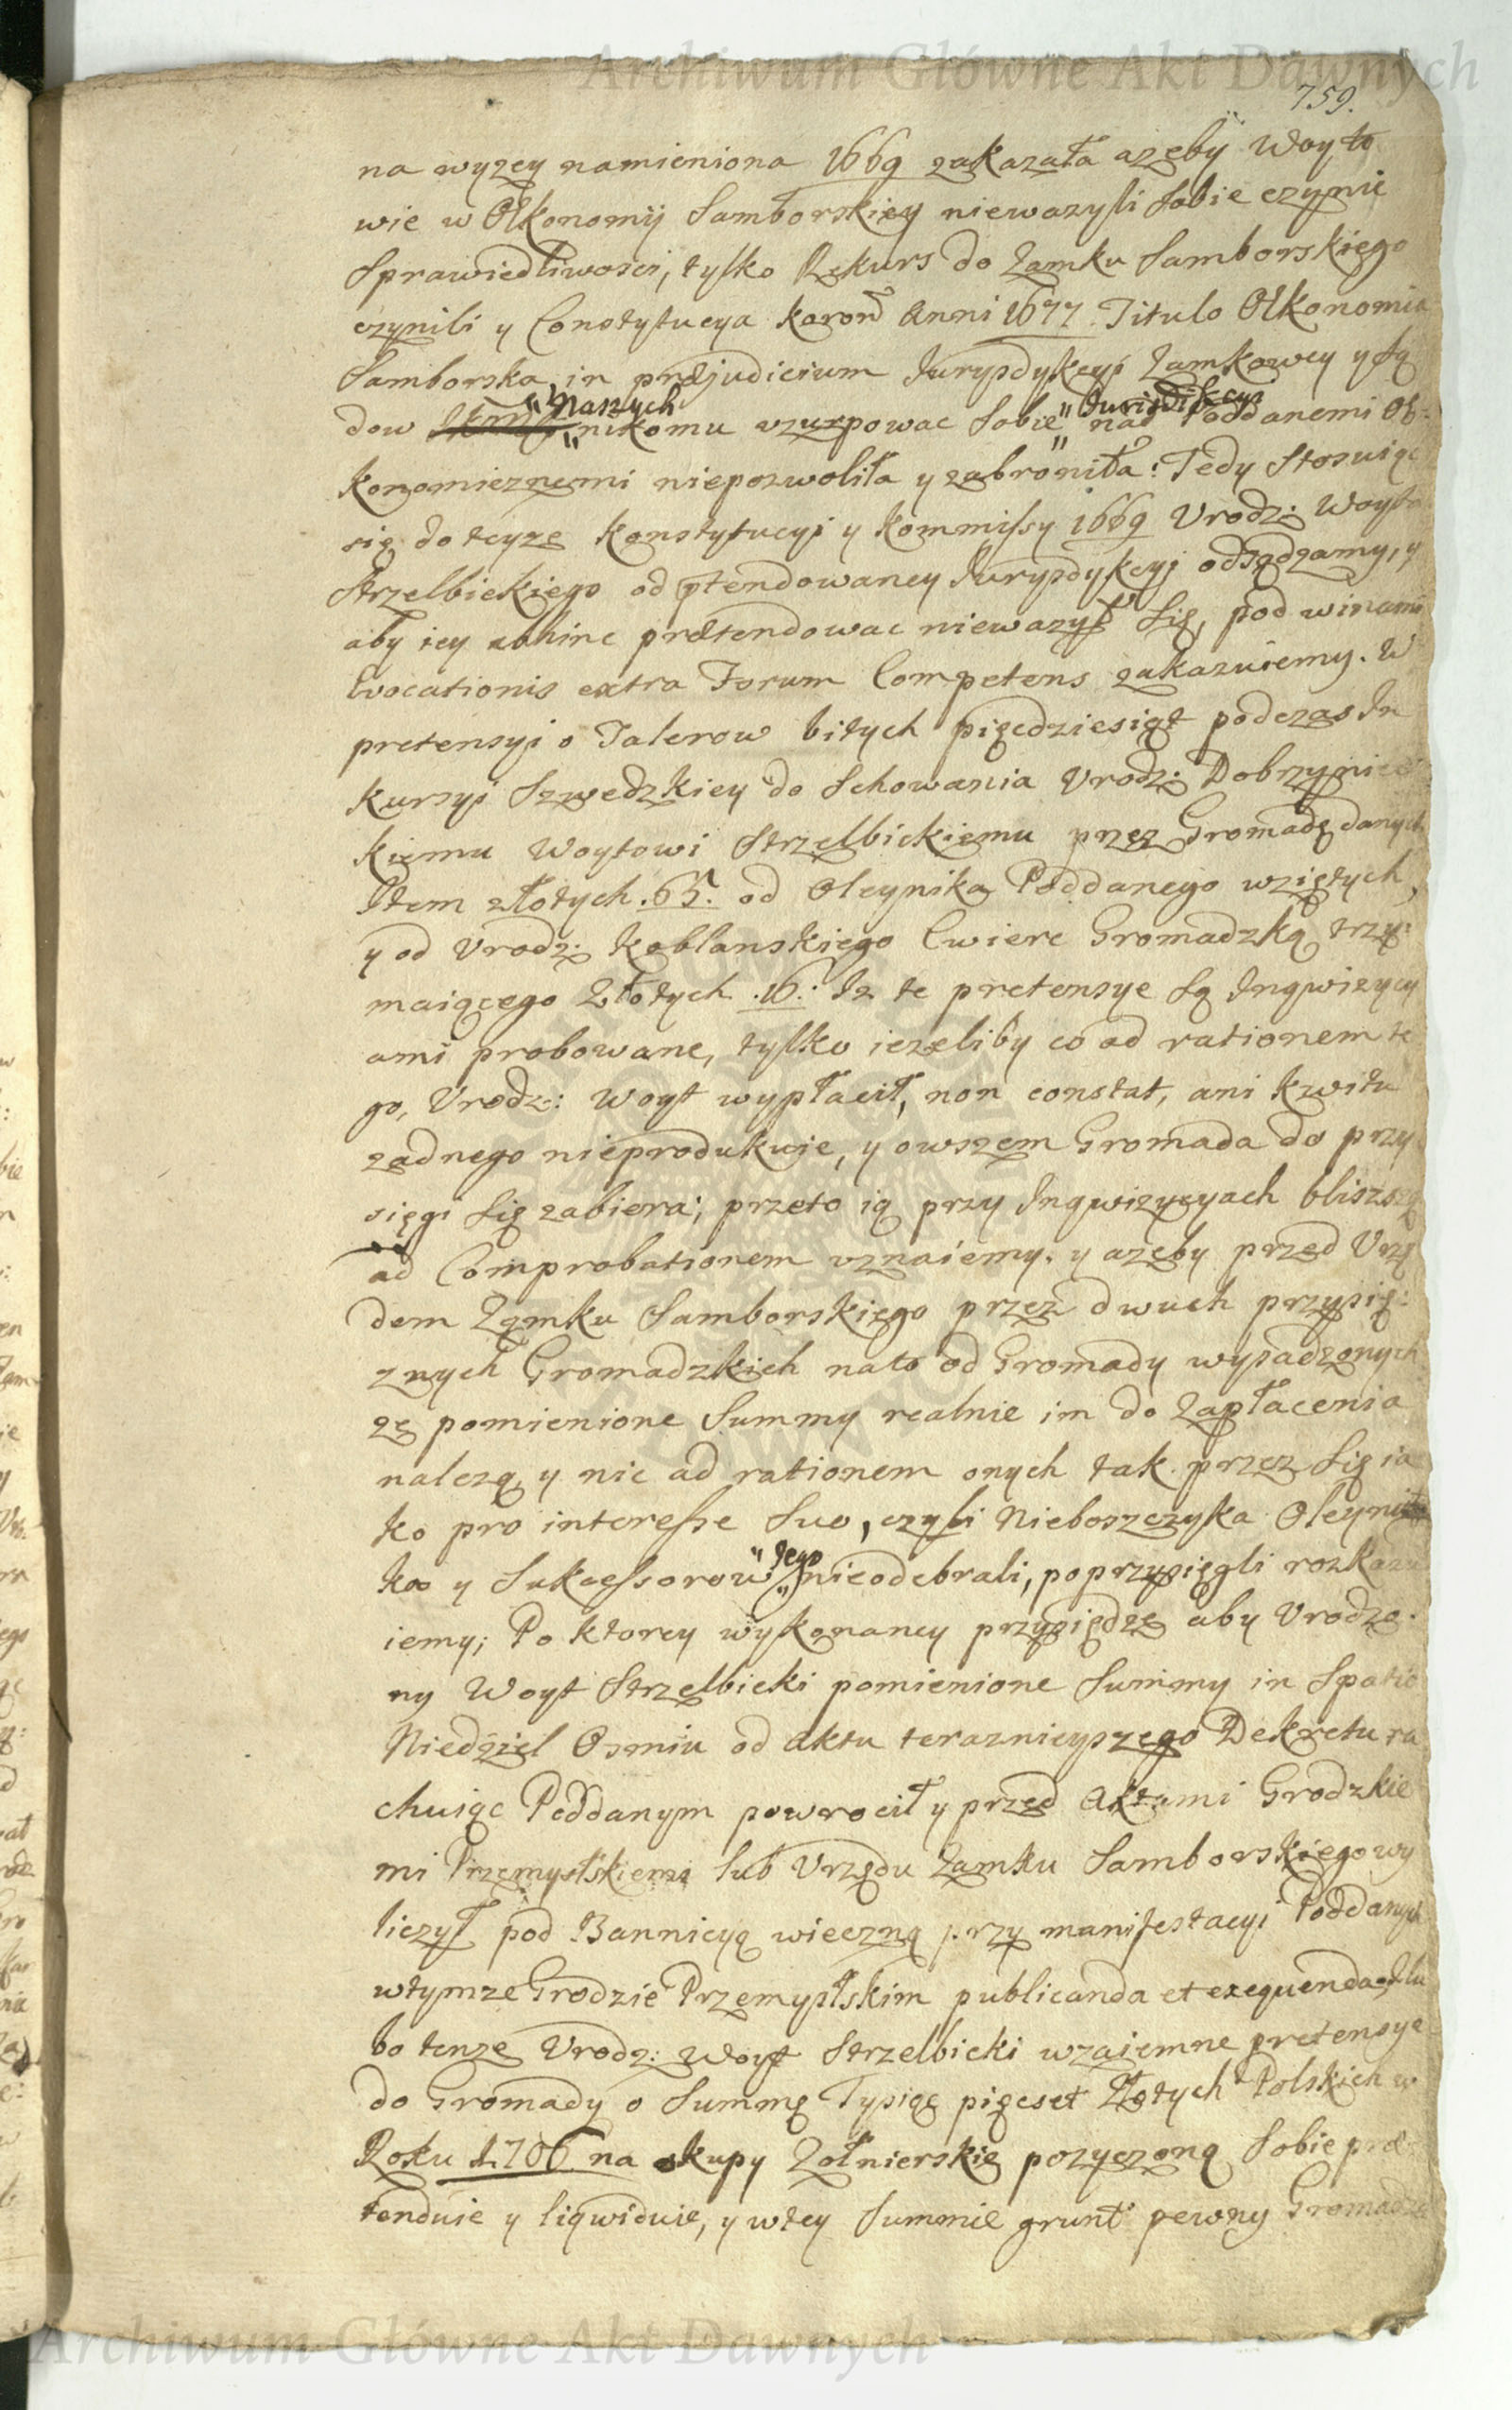 Archiwum Główne Akt Dawnych
759.
na wyzey namieniona 1669 zakazała azeby Woyto
wie w Œkonomij Samborskiey niewazyli sobie czynic
Sprawiedliwosci, tylko Rekurs do Zamku Samborskiego
czynili y Constytucya Koron Anni 1677. Titulo Œkonomia
Samborska, in præjudicium Jurysdykcyi Zamkowey y Są
dow "Naszych" nikomu uzurpowac sobie "Jurisdikcyi" nad Poddanemi Œ-
konomicznemi niepozwoliła y zabroniła: Tedy stosuiąc
się do teyze Konstytucyi y Kommissy 1669 Urodz: Woyta
Strzelbickiego od ptendowaney Jurysdykcyi odsądzamy, y
aby iey abhinc prætendowac niewazył się, pod winami
Evocationis extra Forum Competens zakazuiemy. W
pretensyi o Talerow bitych pięcdziesiąt podczas In
kursyi Szwedzkiey do Schowania Urodz: Dobrzyniec
kiemu Woytowi Strzelbickiemu przez Gromadę danych
Item złotych .65. od Oleynika Poddanego wziętych,
y od Urodz: Koblanskiego Cwierc Gromadzką trzy:
maiącego Złotych .16.: Iz te pretensye są Inqwizycy
ami probowane, tylko iezeliby co ad rationem te
go, Urodz: Woyt wypłacił, non constat, ani kwitu
zadnego nieprodukuie, y owszem Gromada do przy
sięgi się zabiera; przeto ią przy Inqwizycyach bliszszą
ad Comprobationem uznaiemy. y azeby przed Urzę
dem Zamku Samborskiego przez dwuch przysię:
znych Gromadzkich nato od Gromady wysadzonych
ze pomienione Summy realnie im do Zapłacenia
nalezą, y nic ad rationem onych tak przez się ia
ko pro interesse suo, czyli Nieboszczyka Oleyni
ka y Sukcessorow "Jego" nieodebrali, poprzysięgli rozkazu
iemy; Po ktorey wykonaney przysiędze aby Urodzo:
ny Woyt Strzelbicki pomienione Summy in Spatio
Niedziel Osmiu od aktu teraznieyszego Dekretu ra
chuiąc Poddanym powrocił y przed Aktami Grodzkie
mi Przemysłskiemi lub Urzędu Zamku Samborskiego wy
liczył pod Bannicyą wieczną przy manifestacyi Poddanych
wtymze Grodzie Przemysłskim publicanda et exequenda. Ilu
bo tenze Urodz: Woyt Strzelbicki wzaiemne pretensye
do Gromady o Summę Tysiąc pięcset Złotych Polskich w
Roku 1706 na skupy Zołnierskie pozyczoną sobie præ
tenduie y liqwiduie, y wtey Summie grunt pewny Gromadzki
Archiwum Główne Akt Dawnych